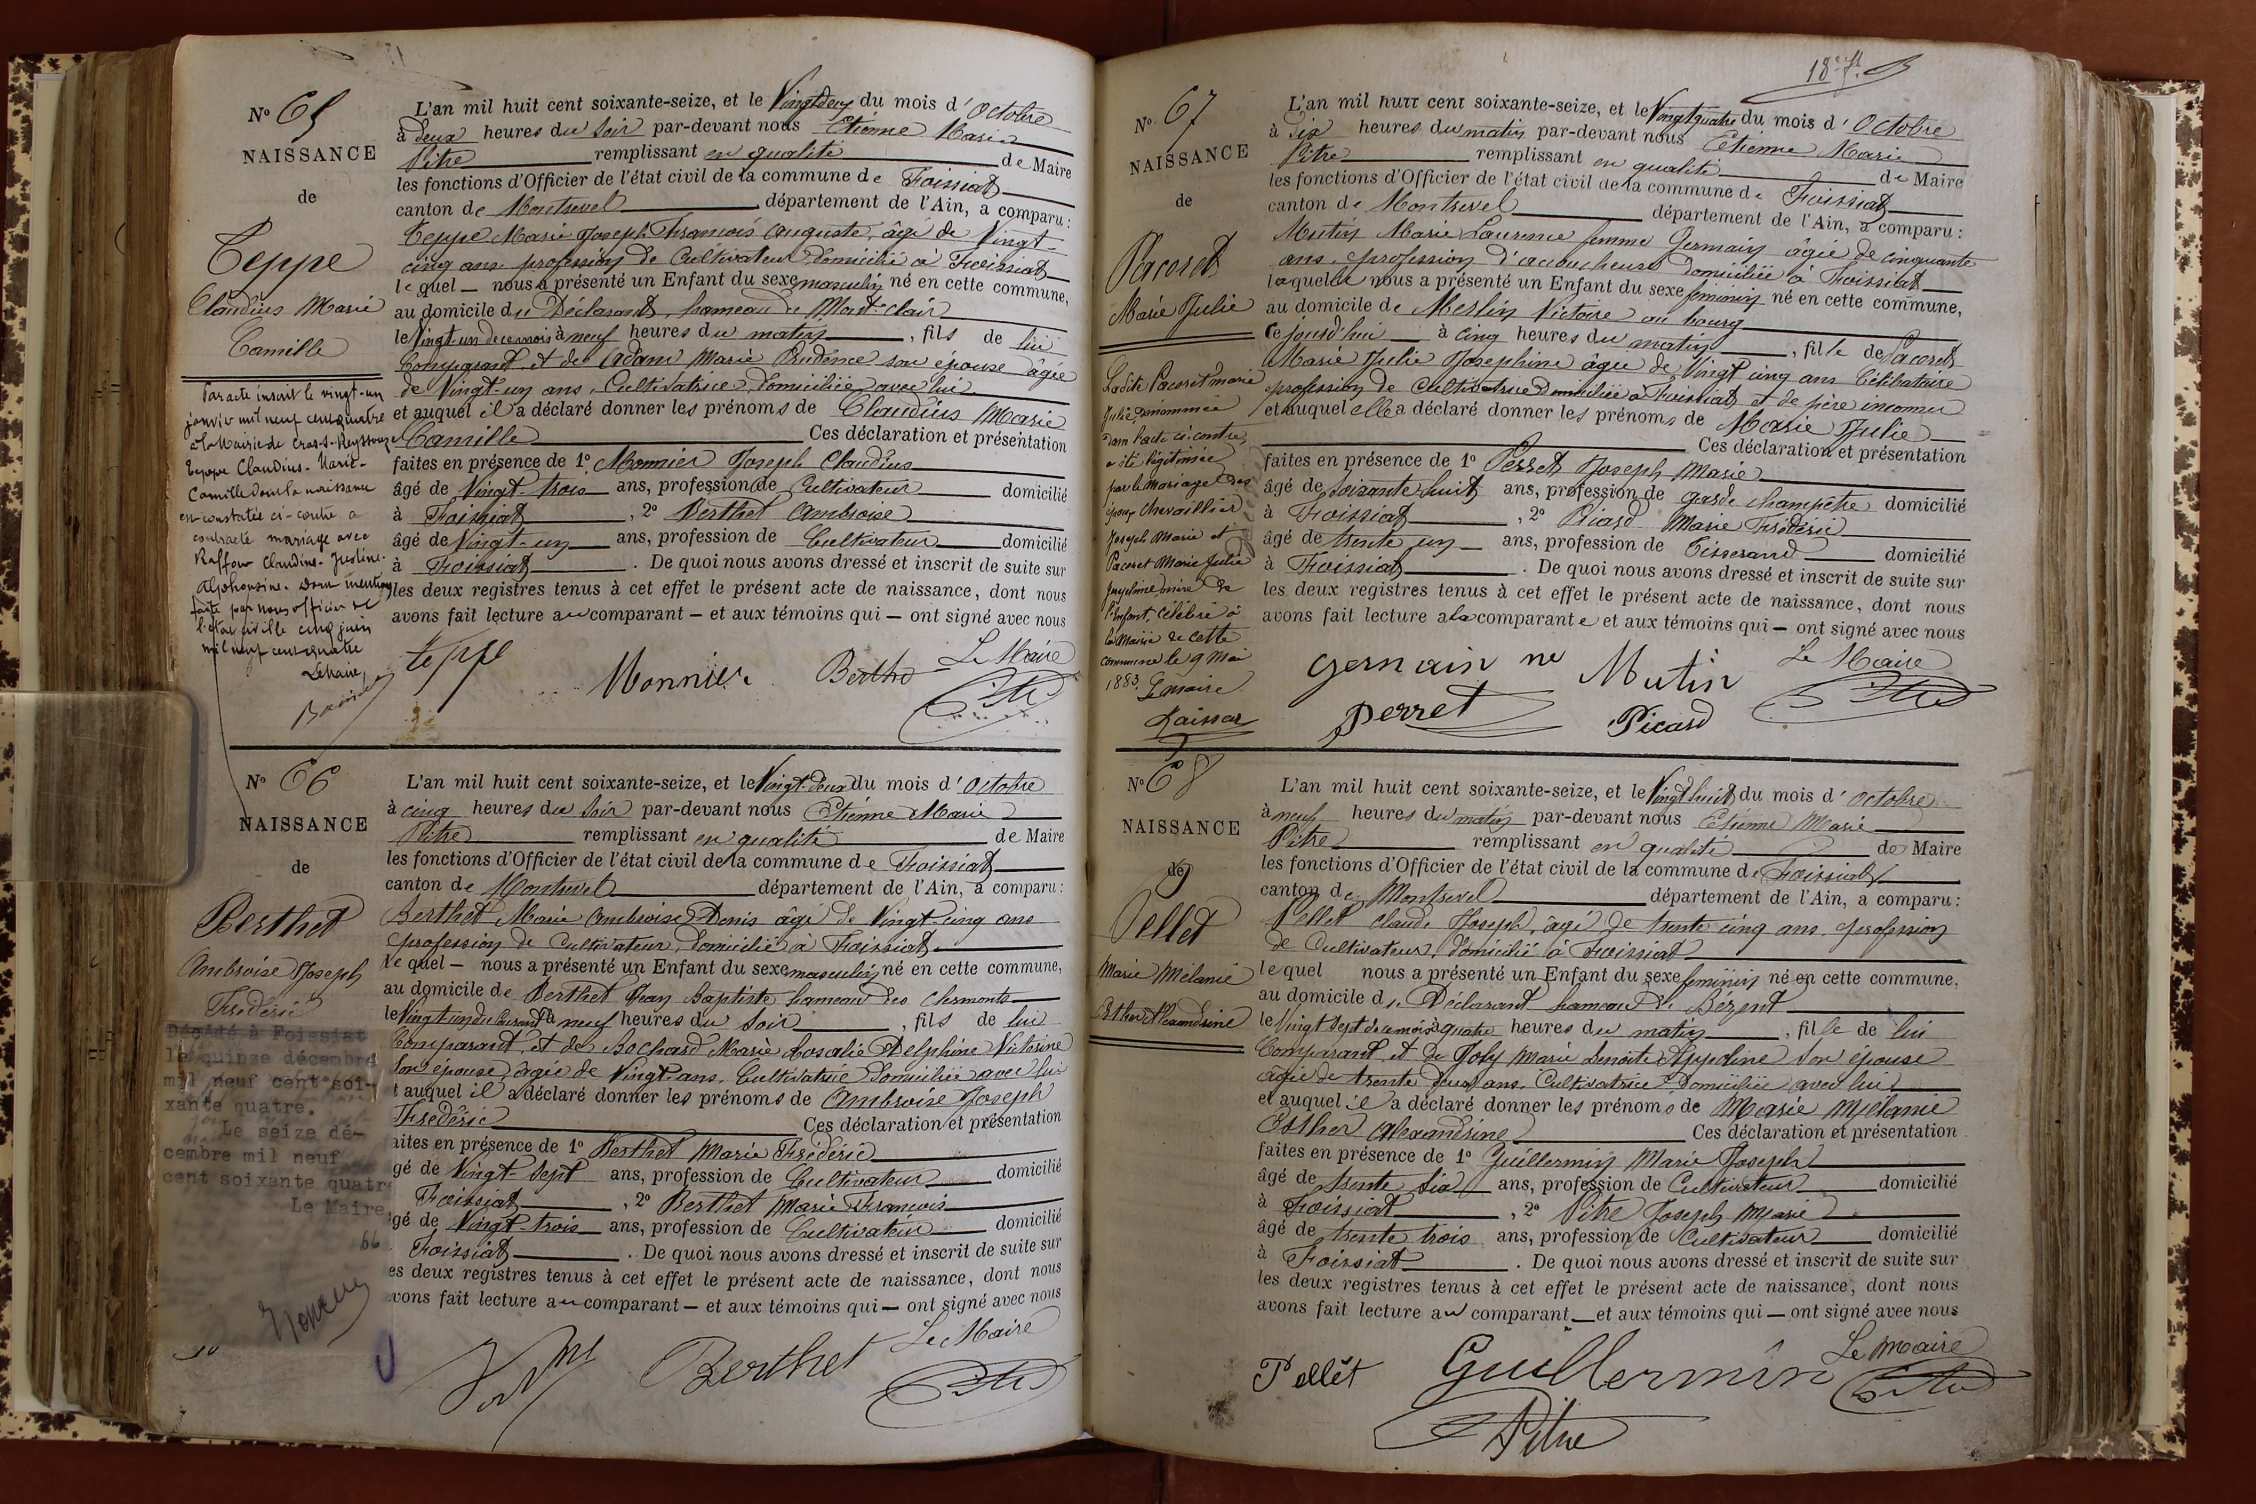 N° 65
NAISSANCE
de
Teppe
Claudius Marie
Camille
Par acte inscrit le vingt-un
janvier mil neuf cent quatre
à la Mairie de Cras-s-Reyssouze
Teppe Claudius-Marie-
Camille dont la naissance
est constatée ci-contre a
contracté mariage avec
Raffour Claudine-Justine-
Alphonsine. Dont mention
faite par nous officier de
l'état civil le cinq juin
mil neuf cent quatre
Le Maire,
L'an mil huit cent soixante-seize, et le Vingt deux du mois d'Octobre
à deux heures du soir par-devant nous Etienne Marie
Pitre remplissant en qualité de Maire
les fonctions d'Officier de l'état civil de la commune de Foissiat
canton de Montrevel département de l'Ain, a comparu :
Teppe Marie Joseph François Auguste, âgé de Vingt-
cinq ans profession de Cultivateur domicilié à Foissiat
lequel — nous a présenté un Enfant du sexe masculin né en cette commune,
au domicile du Déclarant, hameau de Mont-clair
le Vingt-un de ce mois à neuf heures du matin, fils de lui
Comparant et de Adam Marie Prudence son épouse âgée
de Vingt-un ans, Cultivatrice, domiciliée avec lui
et auquel il a déclaré donner les prénoms de Claudius Marie
Camille Ces déclaration et présentation
faites en présence de 1° Monnier Joseph Claudius
âgé de Vingt-trois ans, profession de Cultivateur domicilié
à Foissiat, 2° Berthet Ambroise
âgé de Vingt-un ans, profession de Cultivateur domicilié
à Foissiat. De quoi nous avons dressé et inscrit de suite sur
les deux registres tenus à cet effet le présent acte de naissance, dont nous
avons fait lecture au comparant — et aux témoins qui — ont signé avec nous
Le Maire
teppe Monnier Berthet Pitre
N° 66
NAISSANCE
de
Berthet
Ambroise Joseph
Frédéric
Décédé à Foissiat
le quinze décembre
mil neuf cent soi-
xante quatre.
Le seize dé-
cembre mil neuf
cent soixante quatre
Le Maire,
66
L'an mil huit cent soixante-seize, et le Vingt-deux du mois d'Octobre
à cinq heures du soir par-devant nous Etienne Marie
Pitre remplissant en qualité de Maire
les fonctions d'Officier de l'état civil de la commune de Foissiat
canton de Montrevel département de l'Ain, a comparu :
Berthet Marie Ambroise Denis âgé de Vingt-cinq ans
profession de Cultivateur, domicilié à Foissiat
lequel — nous a présenté un Enfant du sexe masculin né en cette commune,
au domicile de Berthet Jean Baptiste hameau des Clermonts
le Vingt-un du Courant à neuf heures du soir, fils de lui
Comparant, et de Bochard Marie Rosalie Delphine Victorine
son épouse, âgée de Vingt ans, Cultivatrice domiciliée avec lui
t auquel il a déclaré donner les prénoms de Ambroise Joseph
Frédéric Ces déclaration et présentation
aites en présence de 1° Berthet Marie Frédéric
gé de Vingt-Sept ans, profession de Cultivateur domicilié
Foissiat, 2° Berthet Marie François
gé de Vingt-trois ans, profession de Cultivateur domicilié
Foissiat. De quoi nous avons dressé et inscrit de suite sur
es deux registres tenus à cet effet le présent acte de naissance, dont nous
vons fait lecture au comparant — et aux témoins qui — ont signé avec nous
Le Maire
Berthet Pitre
N° 67
NAISSANCE
de
Pacoret
Marie Julie
Ladite Pacoret Marie
Julie, dénommée
dans l'acte ci-contre,
a été légitimée
par le mariage des
époux Chevaillier
Joseph Marie et
Pacoret Marie Julie
Joséphine mère de
l'enfant, célébré à
la Mairie de cette
commune le 9 Mai
1883. Le maire
L'an mil huit cent soixante-seize, et le Vingt quatre du mois d'Octobre
à Dix heures du matin par-devant nous Etienne Marie
Pitre remplissant en qualité de Maire
les fonctions d'Officier de l'état civil de la commune de Foissiat
canton de Montrevel département de l'Ain, a comparu :
Mutin Marie Laurence femme Germain âgée de cinquante
ans, profession d'accoucheuse domiciliée à Foissiat
laquelle nous a présenté un Enfant du sexe féminin né en cette commune,
au domicile de Meslin Victoire au bourg
Cejourd'hui à cinq heures du matin, fille de Pacoret
Marie Julie Joséphine âgée de Vingt cinq ans Célibataire
profession de Cultivatrice domiciliée à Foissiat, et de père inconnu
et auquel elle a déclaré donner les prénoms de Marie Julie
Ces déclaration et présentation
faites en présence de 1° Perret Joseph Marie
âgé de soixante huit ans, profession de garde champêtre domicilié
à Foissiat, 2° Picard Marie Frédéric
âgé de trente un ans, profession de Tisserand domicilié
à Foissiat. De quoi nous avons dressé et inscrit de suite sur
les deux registres tenus à cet effet le présent acte de naissance, dont nous
avons fait lecture à la comparante et aux témoins qui — ont signé avec nous
Le Maire
germain né Mutin Pitre
perret Picard
N° 68
NAISSANCE
de
Pellet
Marie Mélanie
Esther Alexandrine
L'an mil huit cent soixante-seize, et le Vingt huit du mois d'Octobre
à neuf heures du matin par-devant nous Etienne Marie
Pitre remplissant en qualité de Maire
les fonctions d'Officier de l'état civil de la commune de Foissiat
canton de Montrevel département de l'Ain, a comparu :
Pellet Claude Joseph, âgé de trente cinq ans, profession
de Cultivateur, domicilié à Foissiat
lequel nous a présenté un Enfant du sexe féminin né en cette commune,
au domicile du Déclarant hameau de Bézent
le Vingt Sept de ce mois à quatre heures du matin, fille de lui
Comparant, et de Joly Marie Benoite Appoline son épouse
âgée de trente deux ans, Cultivatrice domiciliée avec lui
et auquel il a déclaré donner les prénoms de Marie Mélanie
Esther Alexandrine Ces déclaration et présentation
faites en présence de 1° Guillermin Marie Joseph
âgé de trente Six ans, profession de Cultivateur domicilié
à Foissiat, 2° Pitre Joseph Marie
âgé de trente trois ans, profession de Cultivateur domicilié
à Foissiat. De quoi nous avons dressé et inscrit de suite sur
les deux registres tenus à cet effet le présent acte de naissance, dont nous
avons fait lecture au comparant — et aux témoins qui — ont signé avec nous
Le Maire
Pellet Guillermin Pitre
Pitre